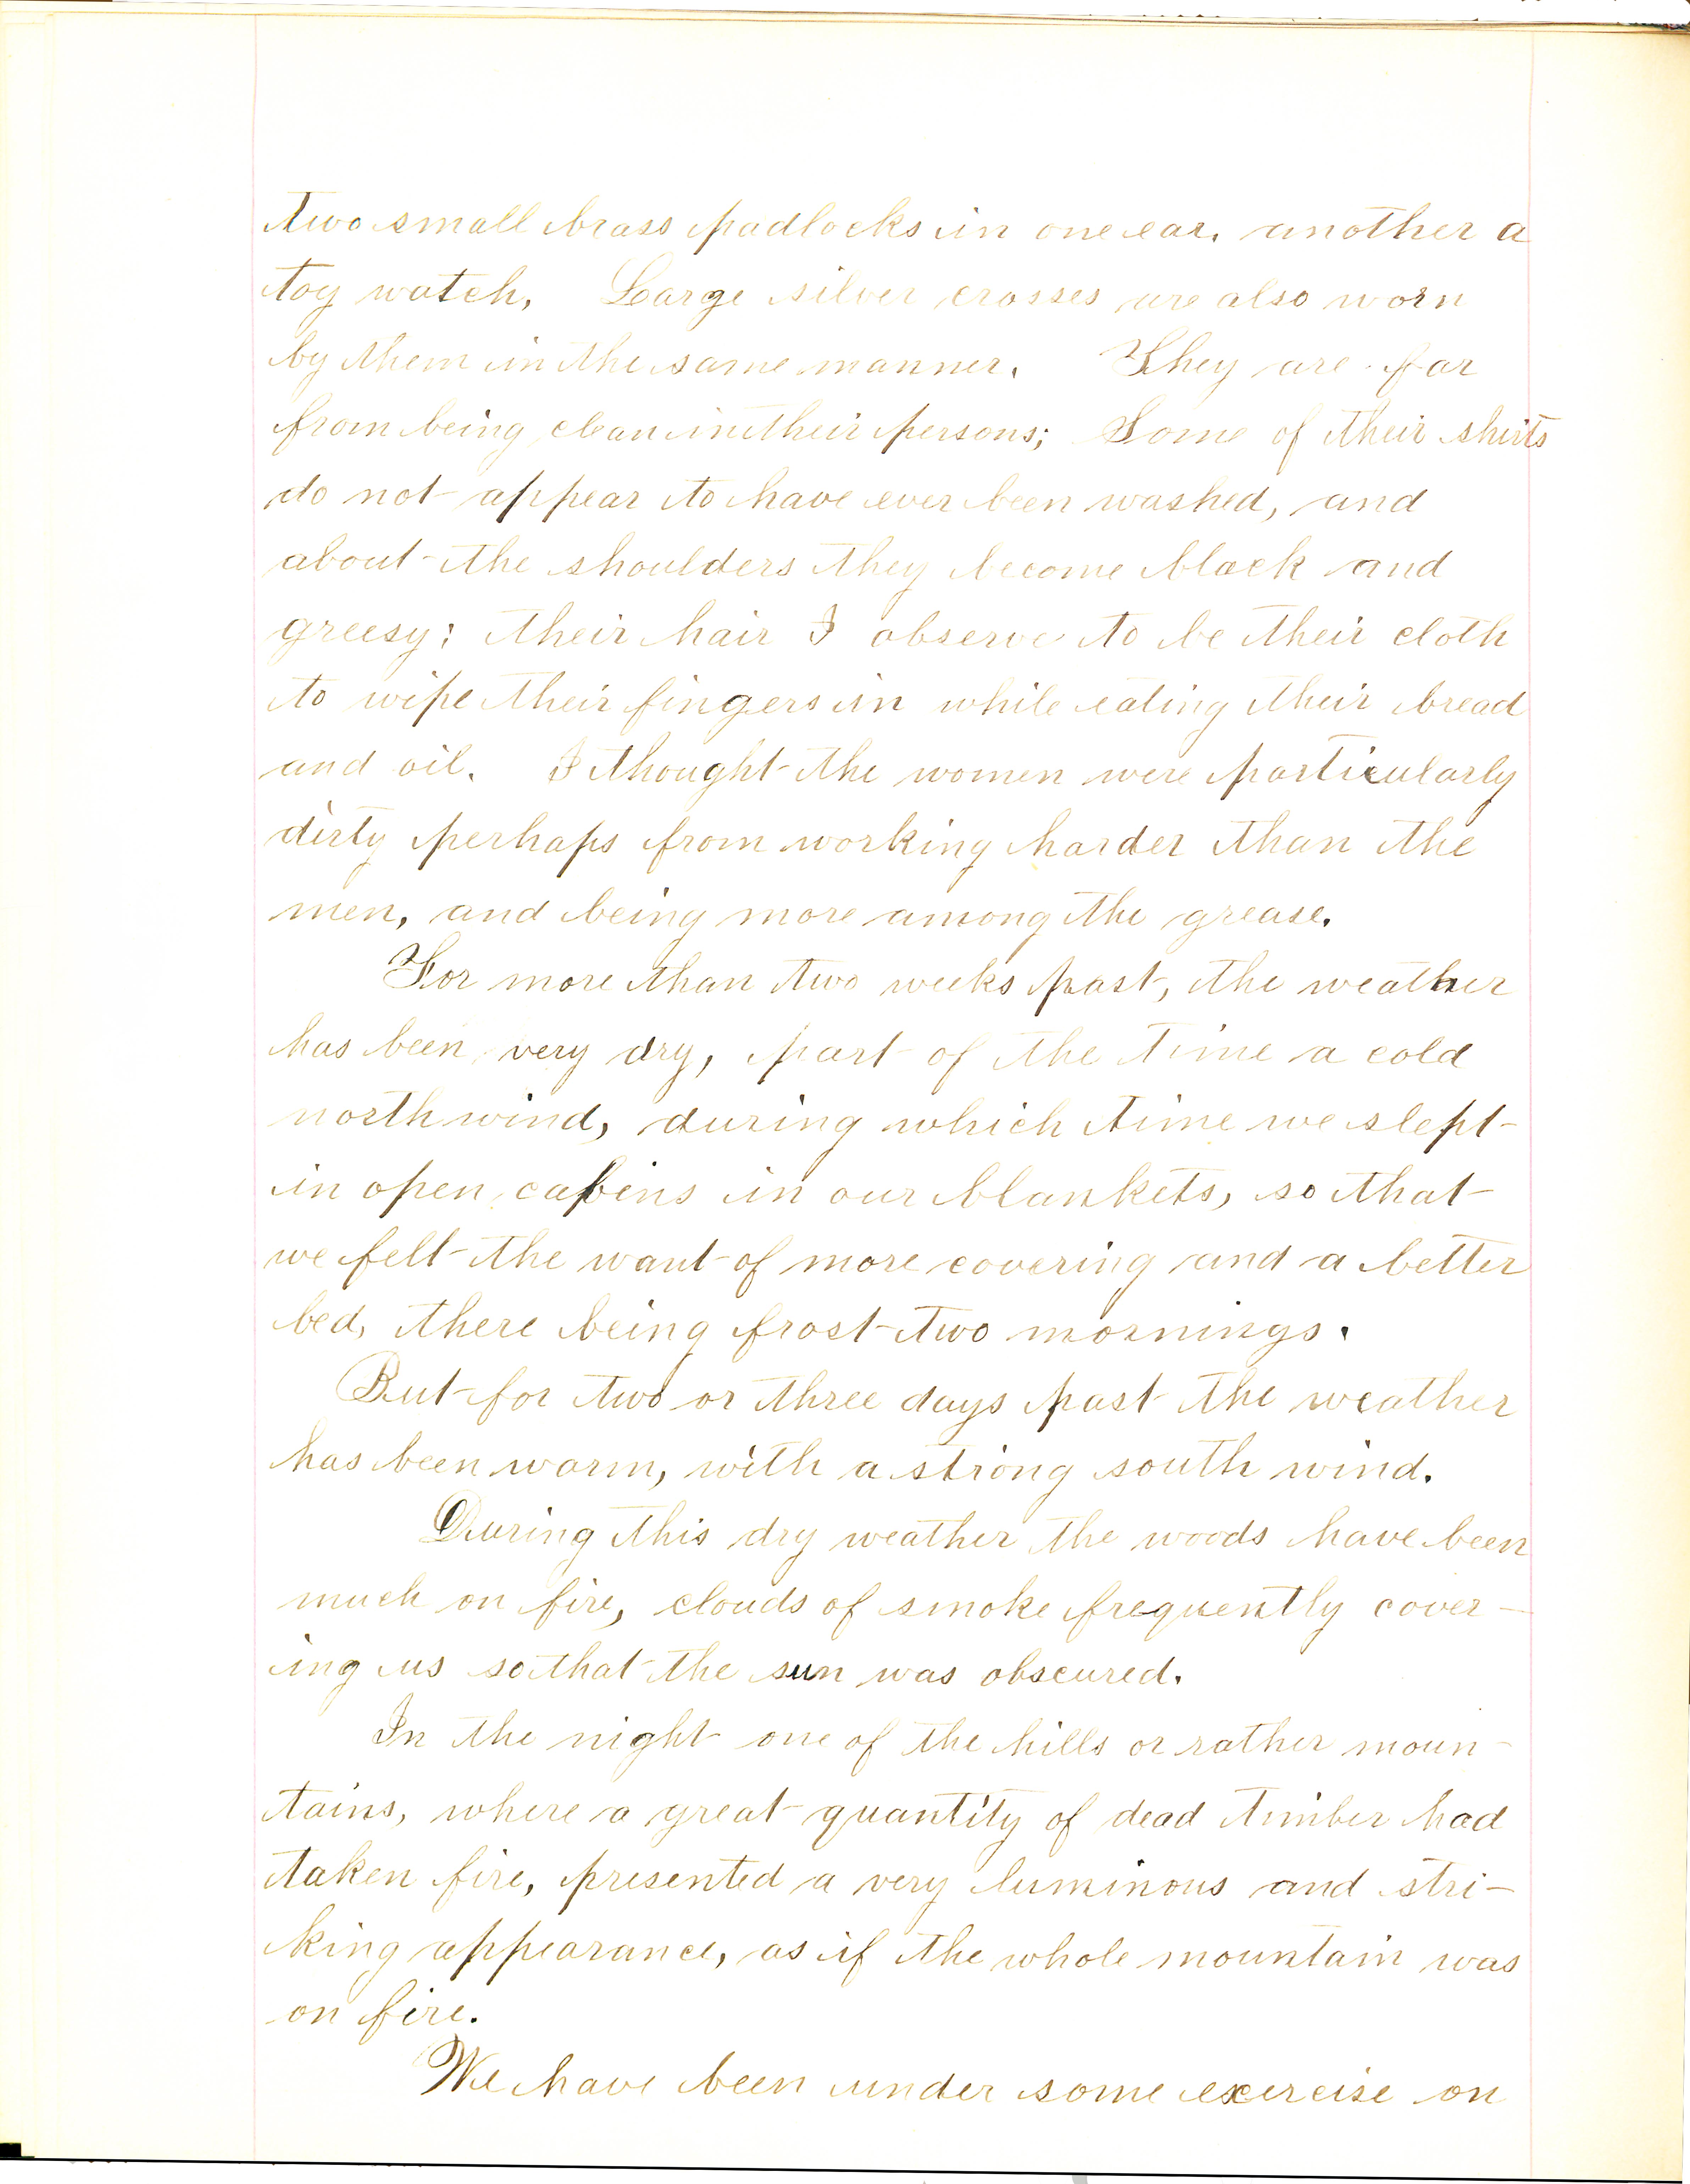 two small brass padlocks in one ear, another a
toy watch, Large silver crosses are also worn
by them in the same manner. They are far
from being clean in their persons; Some of their shirts
do not appear to have ever been washed, and
about the shoulders they become black and
greesy; their hair I observe to be their cloth
to wipe their fingers in while eating their bread
and oil. I thought the women were particularly
dirty perhaps from working harder than the
men, and being more among the grease.
For more than two weeks past, the weather
has been very dry, part of the time a cold
north wind, during which time we slept
in open cabins in our blankets, so that
we felt the want of more covering and a better
bed, there being frost two mornings.
But for two or three days past the weather
has been warm, with a strong south wind.
During this dry weather the woods have been
much on fire, clouds of smoke frequently cover-
ing us so that the sun was obscured.
In the night one of the hills or rather moun-
tains, where a great quantity of dead timber had
taken fire, presented a very luminous and stri-
king appearance, as if the whole mountain was
on fire.
We have been under some exercise on